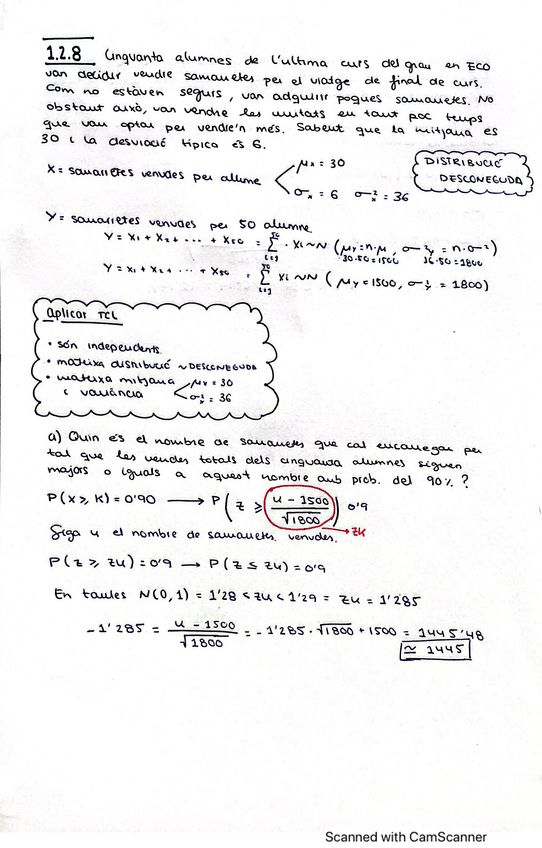 1.2.8 Cinquanta alumnes de l'ultima curs del grau en ECO
van decidir vendre samarretes per el viatge de final de curs.
Com no estaven segurs, van adquirir poques samarretes. No
obstant això, van vendre les unitats en tant poc temps
que van optar per vendre'n més. Sabent que la mitjana és
30 i la desviació típica és 6.
X = samarretes venudes per alumne
μx = 30
σx = 6 σ²x = 36
DISTRIBUCIÓ
DESCONEGUDA
Y = samarretes venudes per 50 alumne
Y = X1 + X2 + ... + X50 = Σ · Xi ~ N (μy = n·μ, σ²y = n·σ²)
30·50=1500 36·50=1800
Y = X1 + X2 + ... + X50 = Σ Xi ~ N (μy = 1500, σ²y = 1800)
Aplicar TCL
• són independents
• mateixa distribució ~ DESCONEGUDA
• mateixa mitjana μx = 30
i variància σ²x = 36
a) Quin és el nombre de samarretes que cal encarregar per
tal que les vendes totals dels cinquanta alumnes siguen
majors o iguals a aquest nombre amb prob. del 90% ?
P(X ≥ K) = 0'90 → P ( Z ≥ u - 1500 / √1800 ) 0'9
→ zu
Siga u el nombre de samarretes venudes.
P(Z ≥ zu) = 0'9 → P(Z ≤ zu) = 0'9
En taules N(0,1) = 1'28 < zu < 1'29 = zu = 1'285
-1'285 = u - 1500 / √1800 = -1'285 · √1800 + 1500 = 1445'48
≃ 1445
Scanned with CamScanner